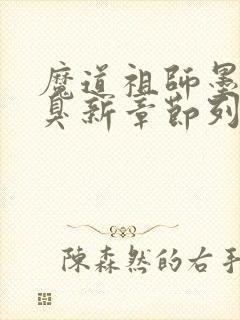 魔道祖師墨
臭新章節列
陳森然的右手